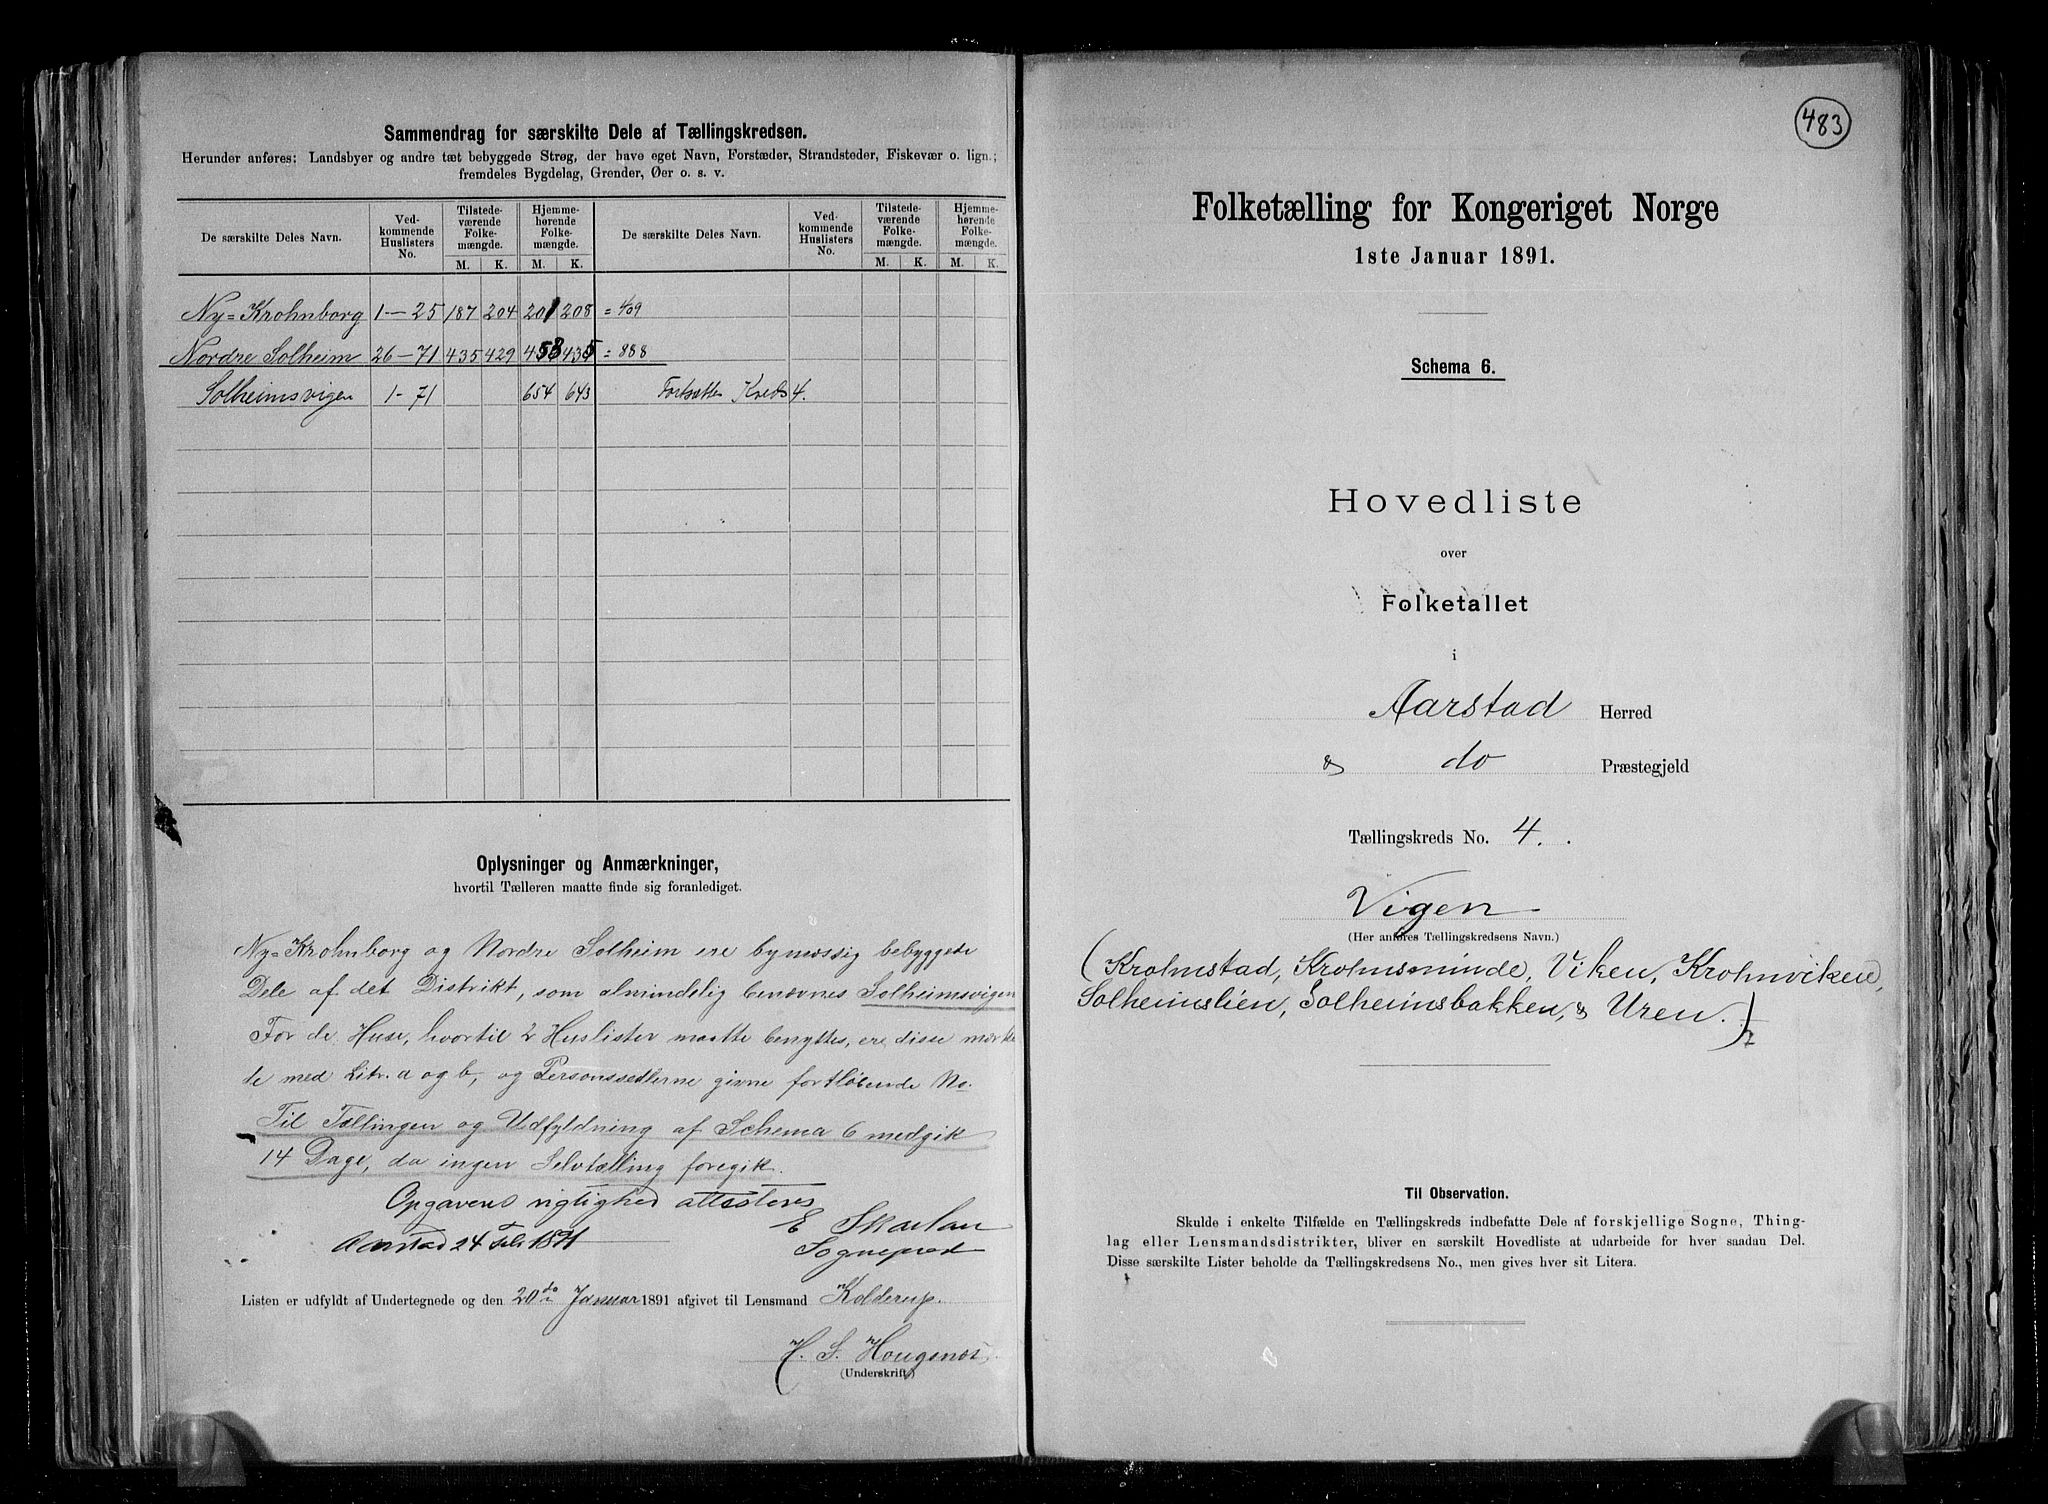 Sammendrag for særskilte Dele af Tællingskredsen.
Herunder anføres: Landsbyer og andre tæt bebyggede Strøg, der have eget Navn, Forstæder, Strandsteder, Fiskevær o. lign.;
fremdeles Bygdelag, Grender, Øer o. s. v.
De særskilte Deles Navn. Ved-kommende Huslisters No. Tilstede-værende Folke-mængde. Hjemme-hørende Folke-mængde. De særskilte Deles Navn. Ved-kommende Huslisters No. Tilstede-værende Folke-mængde. Hjemme-hørende Folke-mængde.
M. K. M. K. M. K. M. K.
Ny=Krohnborg 1—25 187 204 201 208 = 409
Nordre Solheim 26—71 435 429 453 435 = 888
Solheimsvigen 1-71 654 643 Fortsættes Kreds 4.
Oplysninger og Anmærkninger,
hvortil Tælleren maatte finde sig foranlediget.
Ny=Krohnborg og Nordre Solheim ere bymæssig bebyggede
Dele af det Distrikt, som almindelig benævnes Solheimsvigen
For de Huse, hvortil 2 Huslister maatte benyttes, ere disse mærke
de med Litr. a og b, og Personssedlerne givne fortløbende No.
Til Tællingen og Udfyldning af Schema 6 medgik
14 Dage, da ingen Selvtælling foregik.
Opgavens rigtighed attesteres
Aarstad 24 Feb 1891 E Skavlan
Sogneprest
Listen er udfyldt af Undertegnede og den 20de Januar 1891 afgivet til Lensmand Kolderup.
H. S. Hougsnæs.
(Underskrift.)
483
Folketælling for Kongeriget Norge
1ste Januar 1891.
Schema 6.
Hovedliste
over
Folketallet
i
Aarstad Herred
& do Præstegjeld
Tællingskreds No. 4.
Vigen
(Her anføres Tællingskredsens Navn.)
(Krohnstad, Krohnsminde, Viken, Krohnviken,
Solheimslien, Solheimsbakken, & Uren.)
Til Observation.
Skulde i enkelte Tilfælde en Tællingskreds indbefatte Dele af forskjellige Sogne, Thing-
lag eller Lensmandsdistrikter, bliver en særskilt Hovedliste at udarbeide for hver saadan Del.
Disse særskilte Lister beholde da Tællingskredsens No., men gives hver sit Litera.